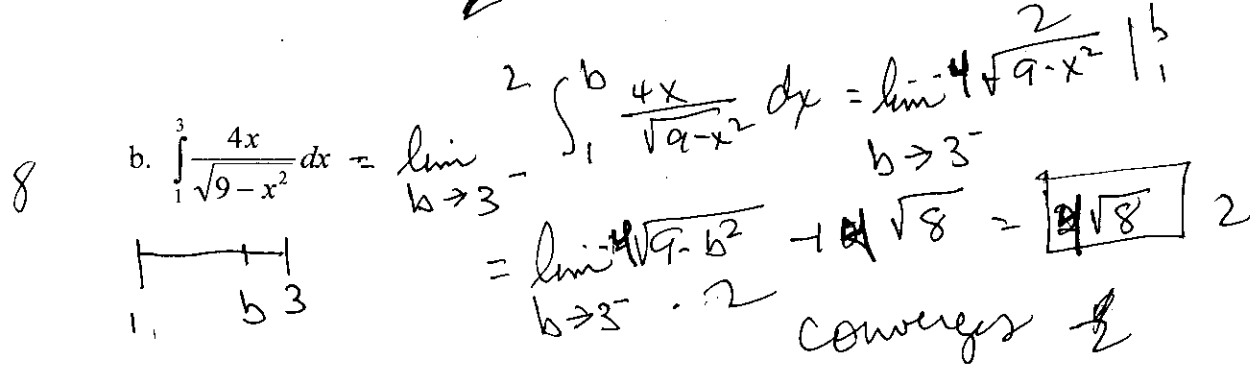 8 b. ∫₁³ 4x/√(9 − x²) dx = lim b→3⁻ 2 ∫₁ᵇ 4x/√(9-x²) dx = lim b→3⁻ -4√(9-x²) |₁ᵇ 2
= lim b→3⁻ -4√(9-b²) + 4√8 = 4√8 2
1 b 3 · 2
converges